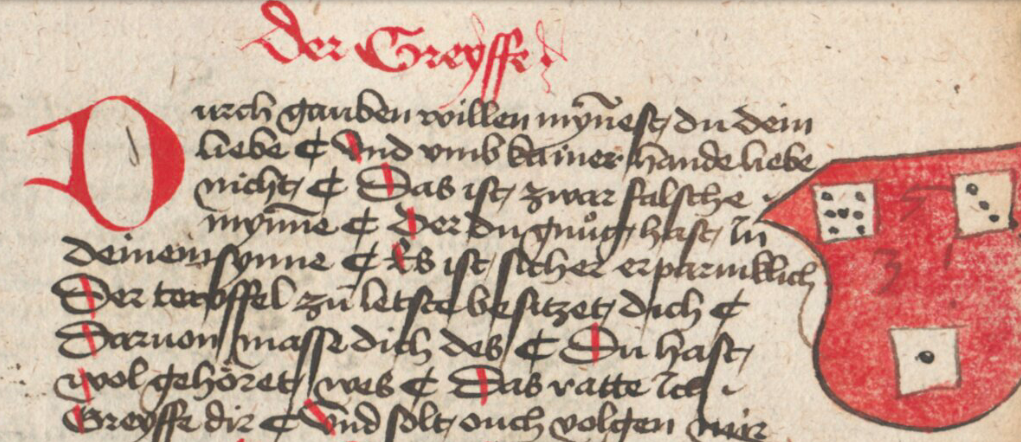 Der Greyffe
Durch gauben willen mÿnest du dein
liebe ¶ Vnd vmb kainer hande liebe
nicht ¶ Das ist zwar falsche
mynne ¶ Der du gnůg hast In
deinem synne ¶ Es ist sicher erparmklich
Der teoffel zů letste besitzet dich ¶
Daruon masse dich des ¶ Du hast
wol gehöret wes ¶ Das ratte Ich
Greyffe dir ¶ Vnd solt ouch volgen mir
5
3 1